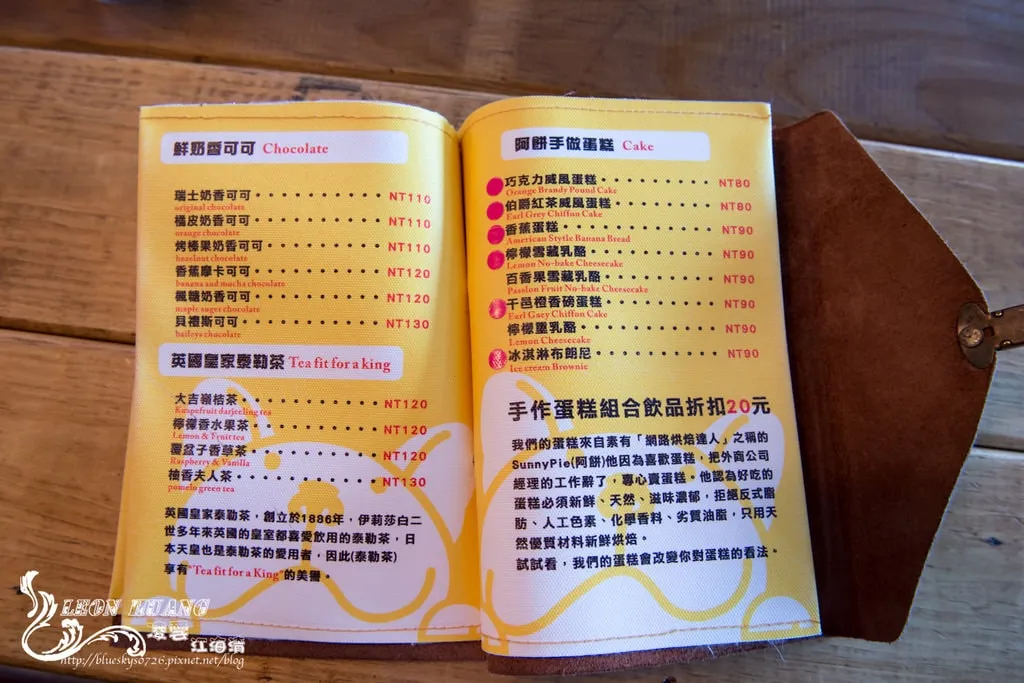 鮮奶香可可 Chocolate
瑞士奶香可可 NT110
original chocolate
橘皮奶香可可 NT110
orange chocolate
烤榛果奶香可可 NT110
hazelnut chocolate
香蕉摩卡可可 NT120
banana and mocha chocolate
楓糖奶香可可 NT120
maple suger chocolate
貝禮斯可可 NT130
baileys chocolate
英國皇家泰勒茶 Tea fit for a king
大吉嶺桔茶 NT120
Kuspefruit darjeeling tea
檸檬香水果茶 NT120
Lemon & Fruit tea
覆盆子香草茶 NT120
Raspberry & Vanilla
柚香夫人茶 NT130
pomelo green tea
英國皇家泰勒茶，創立於1886年，伊莉莎白二
世多年來英國的皇室都喜愛飲用的泰勒茶，日
本天皇也是泰勒茶的愛用者，因此(泰勒茶)
享有"Tea fit for a King"的美譽。
阿餅手做蛋糕 Cake
巧克力威風蛋糕 NT80
Orange Brandy Pound Cake
伯爵紅茶威風蛋糕 NT80
Earl Grey Chiffon Cake
香蕉蛋糕 NT90
American Style Banana Bread
檸檬雪藏乳酪 NT90
Lemon No-bake Cheesecake
百香果雪藏乳酪 NT90
Passion Fruit No-bake Cheesecake
干邑橙香磅蛋糕 NT90
Earl Gaey Chiffon Cake
檸檬重乳酪 NT90
Lemon Cheesecake
冰淇淋布朗尼 NT90
Ice cream Brownie
手作蛋糕組合飲品折扣20元
我們的蛋糕來自素有「網路烘焙達人」之稱的
SunnyPie(阿餅)他因為喜歡蛋糕，把外商公司
經理的工作辭了，專心賣蛋糕。他認為好吃的
蛋糕必須新鮮、天然、滋味濃郁，拒絕反式脂
肪、人工色素、化學香料、劣質油脂，只用天
然優質材料新鮮烘焙。
試試看，我們的蛋糕會改變你對蛋糕的看法。
LEON HUANG
凌雲
江海濱
http://bluesky80726.pixnet.net/blog